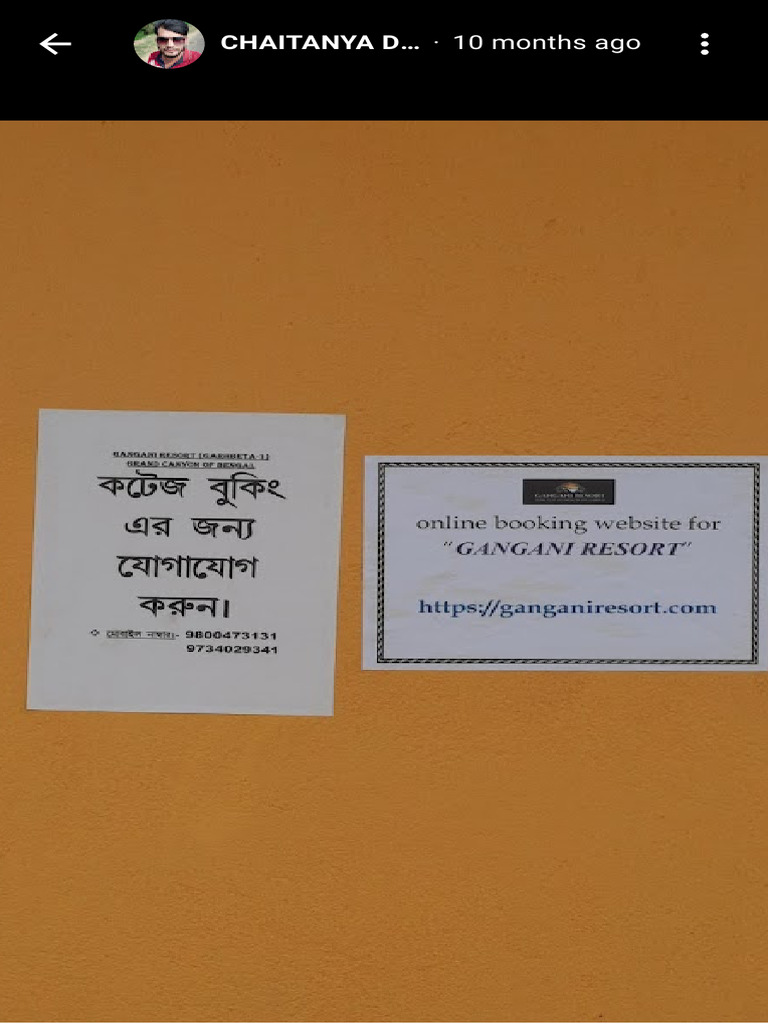 CHAITANYA D... · 10 months ago
GANGANI RESORT [GARHBETA-1]
GRAND CANYON OF BENGAL
কটেজ বুকিং
এর জন্য
যোগাযোগ
করুন।
❖ মোবাইল নাম্বার:- 9800473131
9734029341
GANGANI RESORT
online booking website for
"GANGANI RESORT"
https://ganganiresort.com